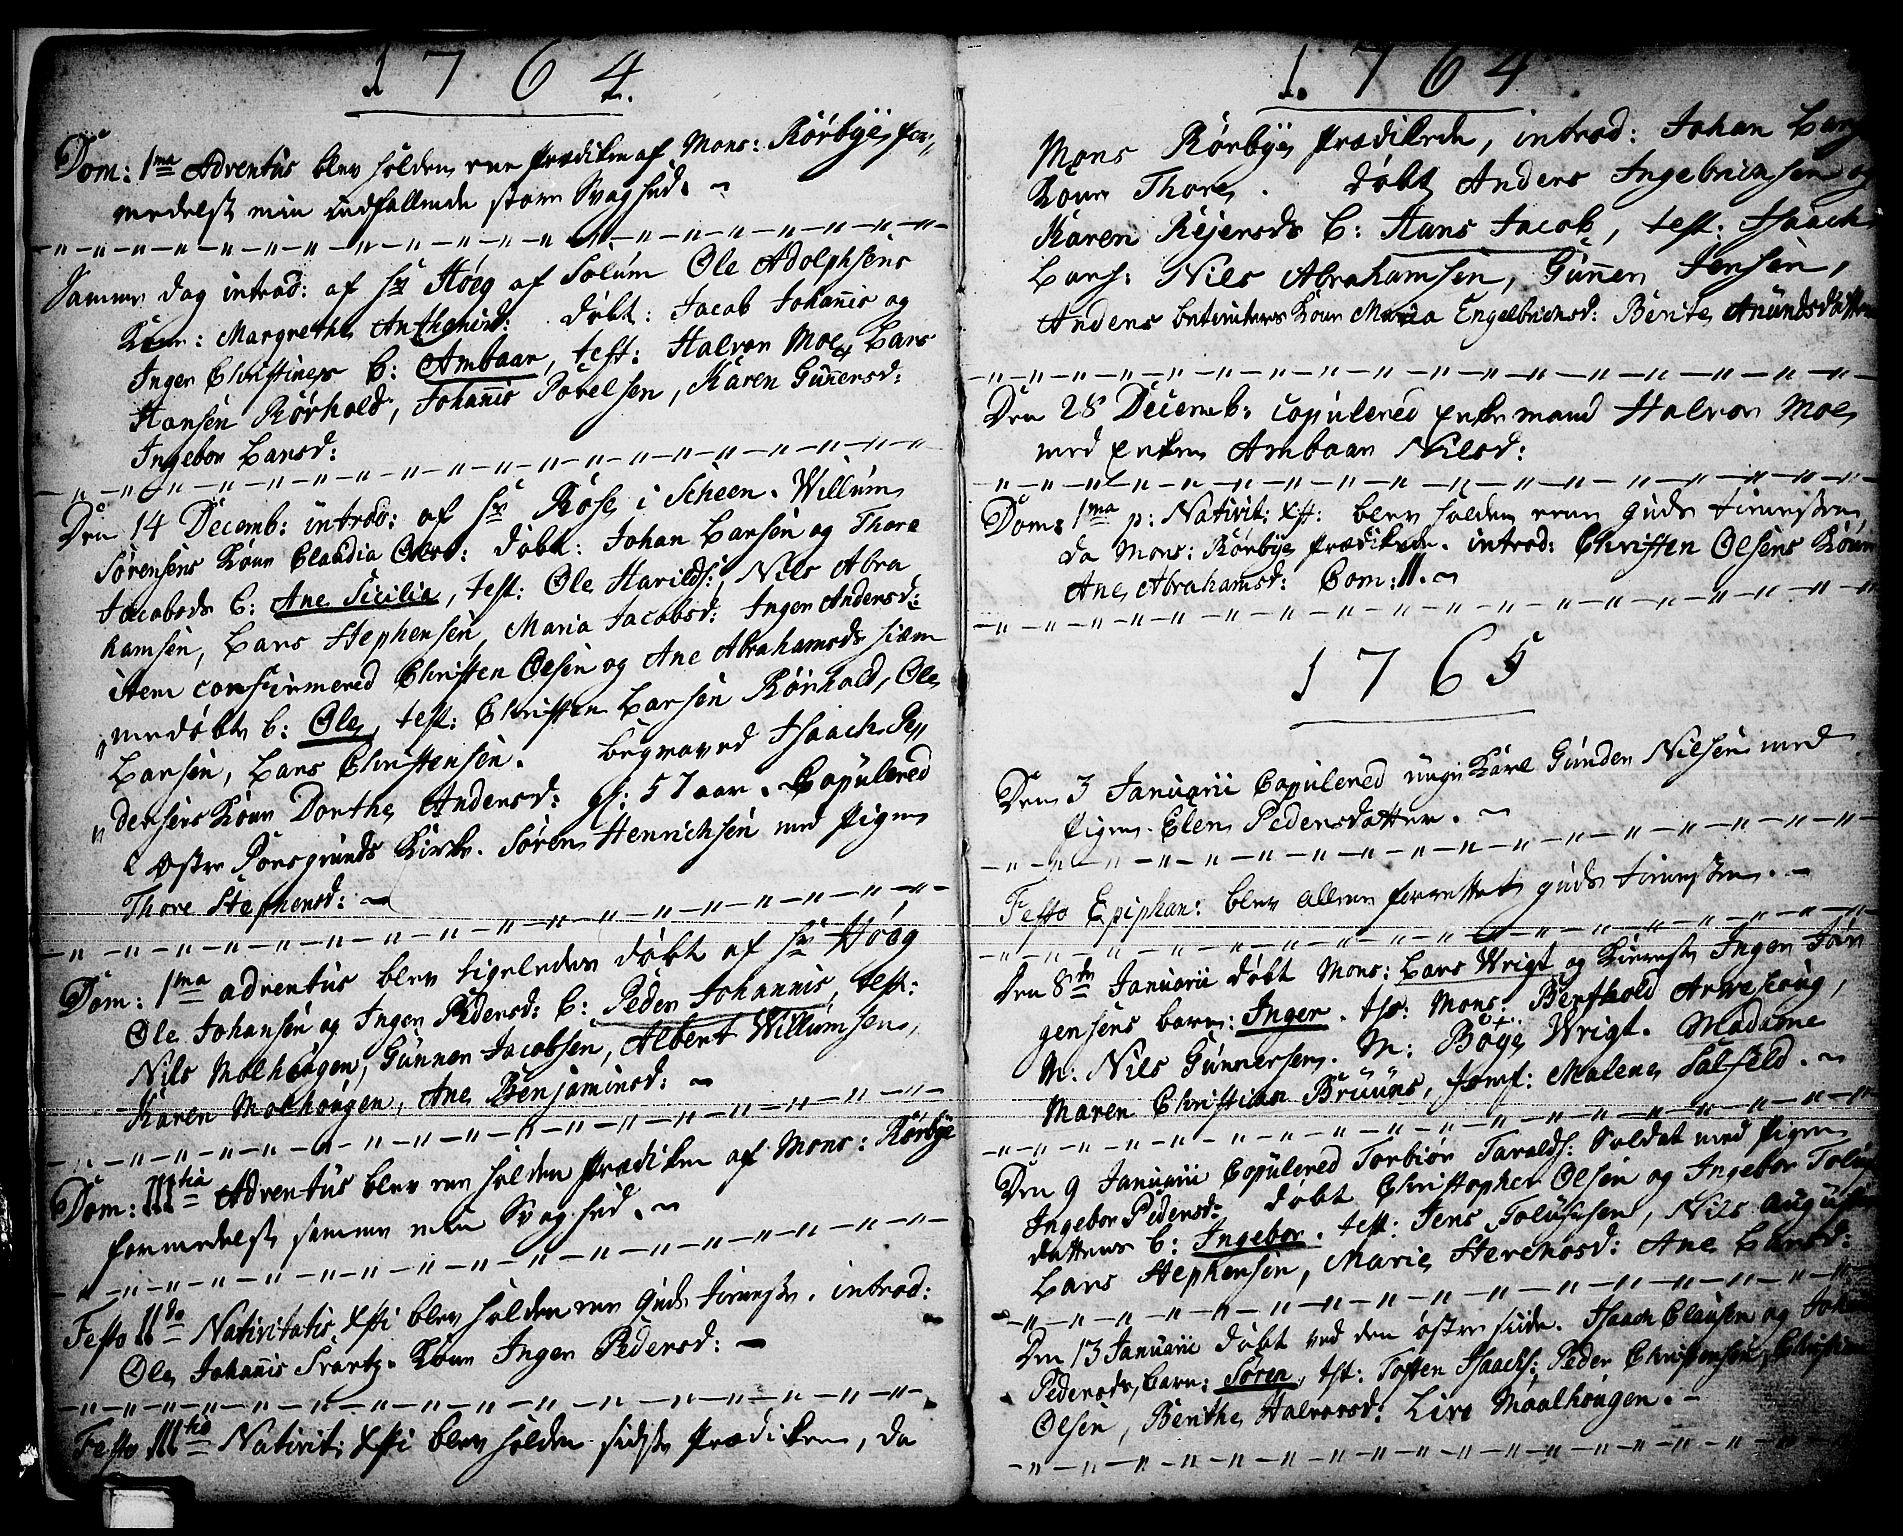 1764.
Dom: 1ma Adventus blev holden een Prædiken af Mons: Rørbye for,,
medelst min indfallende store Svaghed.
Samme dag introd: af Hr Høeg af Solum Ole Adolphsens
Kone: Margrethe døbt: Jacob Johannis og
Inger Christines B: Ambaar, test: Halvor Moe, Lars
Hansen Rørhold, Johannis Povelsen, Karen Gunnersd:
Ingebor Larsd:
Den 14 Decemb: introd: af Hr Rose i Scheen. Willum
Sørensens Kone Claudia Olesd: døbt: Johan Larsen og Thore
Jacobsds B: Ane Sicilia, test: Ole Harilds:, Nils Abra
hamsen, Lars Stephensen, Maria Jacobsd: Inger Andersd:
item confirmered Christen Olsen og Ane Abrahamsds hiem
medøbte B: Ole, test: Christen Larsen Rørhold, Ole
Larsen, Lars Christensen. begraved Isaach Pe,,
dersens Kone Dorthe Andersd: gl: 57 aar. Copulered
i østre Porsgrunds Kirke. Søren Henrichsen med Pigen
Thore Stephensd:
Dom: 1ma adventus blev ligeleden døbt af Hr Høeg
Ole Johansen og Inger Pedersd: B: Peder Johannis, test:
Nils Molhougen, Gunner Jacobsen, Albert Willumsen,
Karen Molhougen, Ane Benjaminsd:
Dom: IIItia Adventus blev een holden Prædiken af Mons: Rørbye
formedelst samme min Svaghed.
Festo IIdo Nativitatis Xsti blev holden een Guds tieneste. introd:
Ole Johannis Svartz. Kone Inger Pedersd:
Festo IIItio Nativit: Xsti blev holden sidste Prædiken, da
1764
Mons Rørbye Prædikede, introd: Johan Lars
Kone Thore. døbt Anders Ingebrichsen og
Karen Rejersds B: Hans Jacob, test: Isaach
Lars: Nils Abrahamsen, Gunner Jensen,
Anders betienters Kone Maria Engelbrichsd: Berite Anundsdatter
Den 28 Decemb: copulered Enke mand Halvor Moe
med Enken Ambaar Nilsd:
Dom: 1ma p: Nativit: Xst: blev holden een Guds tieneste,
da Mons: Rørbye Prædikede. introd: Christen Olsens Kone
Ane Abrahamsd: Com: 11.
1765
Den 3 Januarii Copulered unge Karl Gunder Nilsen med
Pigen Elen Pedersdatter.
Festo Epiphan: blev allene forrettet Guds tieneste.
Den 8de Januarii døbt Mons: Lars Wrigt og Kiereste Inger Jør
gensens barn: Inger. tst: Mons: Berthold Arweschoug,
M: Nils Gunnersen. M: Böÿe Wrigt. Madame
Maren Christian Bruuns, Jomf: Malene Salfeld.
Den 9 Januarii Copulered Torbiør Taralds: Soldat med Pigen
Ingebor Pedersd: døbt Christopher Olsen og Ingebor Tolufs
datters B: Ingebor. test: Jens Tolufsen, Nils Augustin
Lars Stephensen, Marie Sterchosd: Ane Larsd:
Den 13 Januarii døbt ved den østre siide. Isaach Clausen og Johanne
Pedersds, barn: Søren, tst: Tosten Isaachs: Peder Christensen, Christen
Olsen, Berthe Halvorsd: Live Maalhougen.